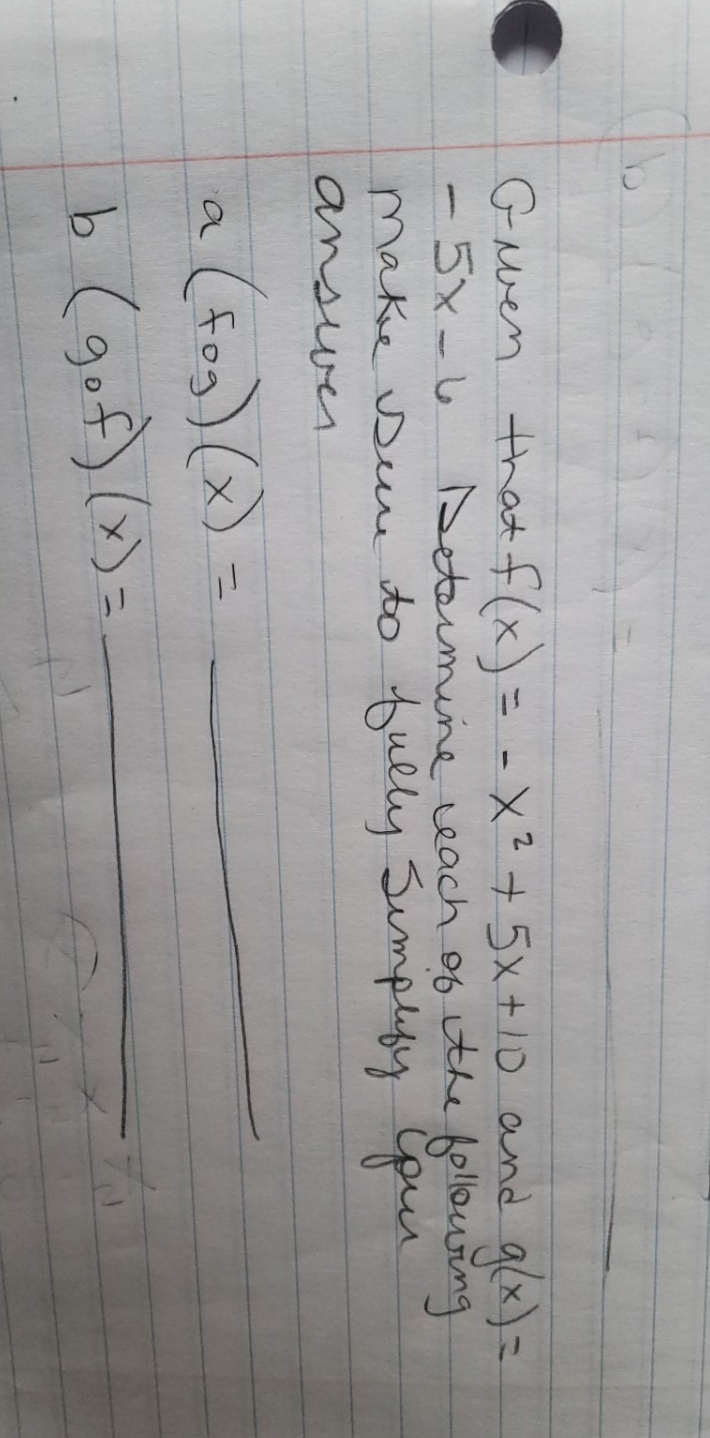 Given that f(x) = - x² + 5x + 10 and g(x) =
- 5x - 6 Determine each of the following
make sure to fully simplify your
answer
a (fog)(x) =
b (gof)(x) =